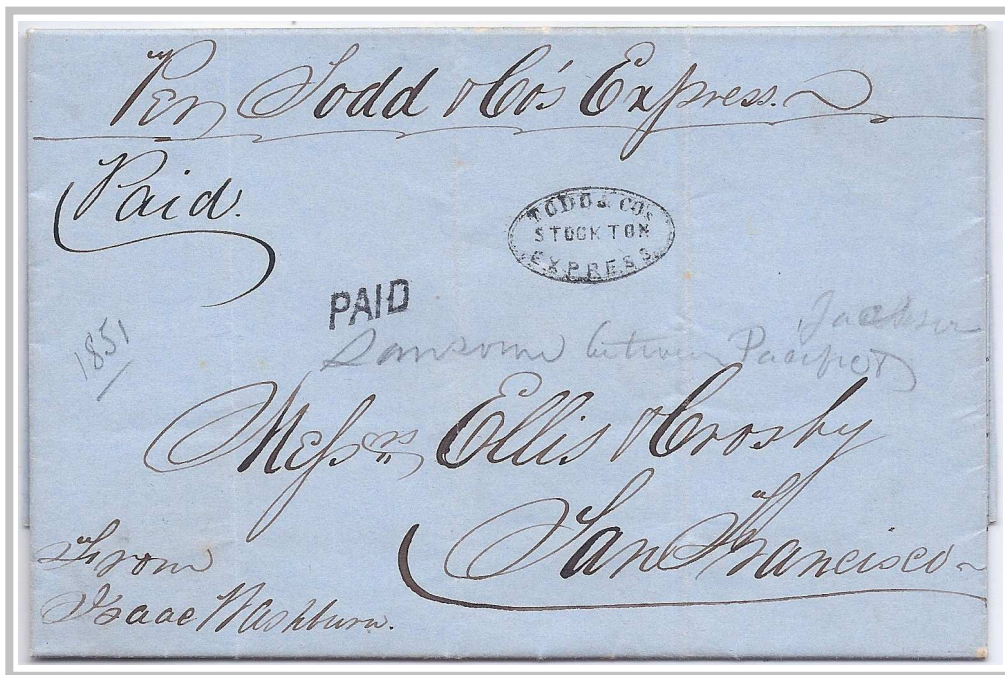 Per Todd & Co's Express.
Paid.
TODD & CO'S
STOCKTON
EXPRESS.
PAID
1851
Jackson
Sansome between Pacific &
Messrs Ellis & Crosby
San Francisco
From
Isaac Washburn.